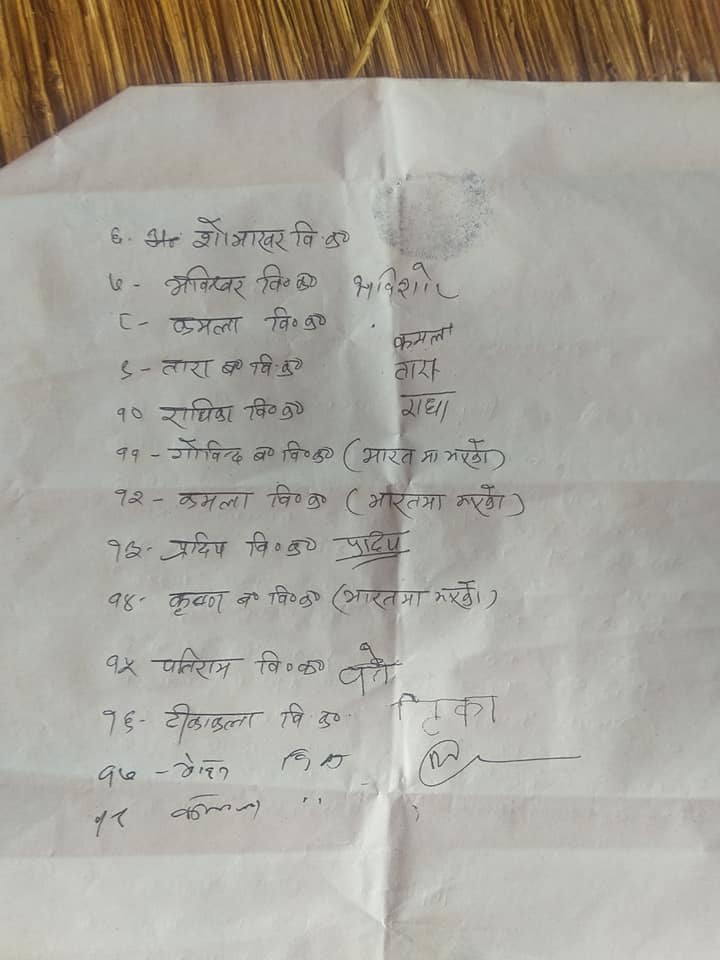 ६. शोभाखर वि.क०
७ - भविश्वर वि०क० भविशोर
८ - कमला वि०क० कमला
९ - तारा ब० वि.क० तारा
१० राधिका वि०क० राधा
११ - गोविन्द ब० वि०क० (भारतमा भएको)
१२ - कमला वि०क० (भारतमा भएको)
१३- प्रदिप वि०क० प्रदिप
१४- कृष्ण ब० वि०क० (भारतमा भएको)
१५ पतिराम वि०क०
१६- टीकाकला वि.क०. टिका
१७ -
१८